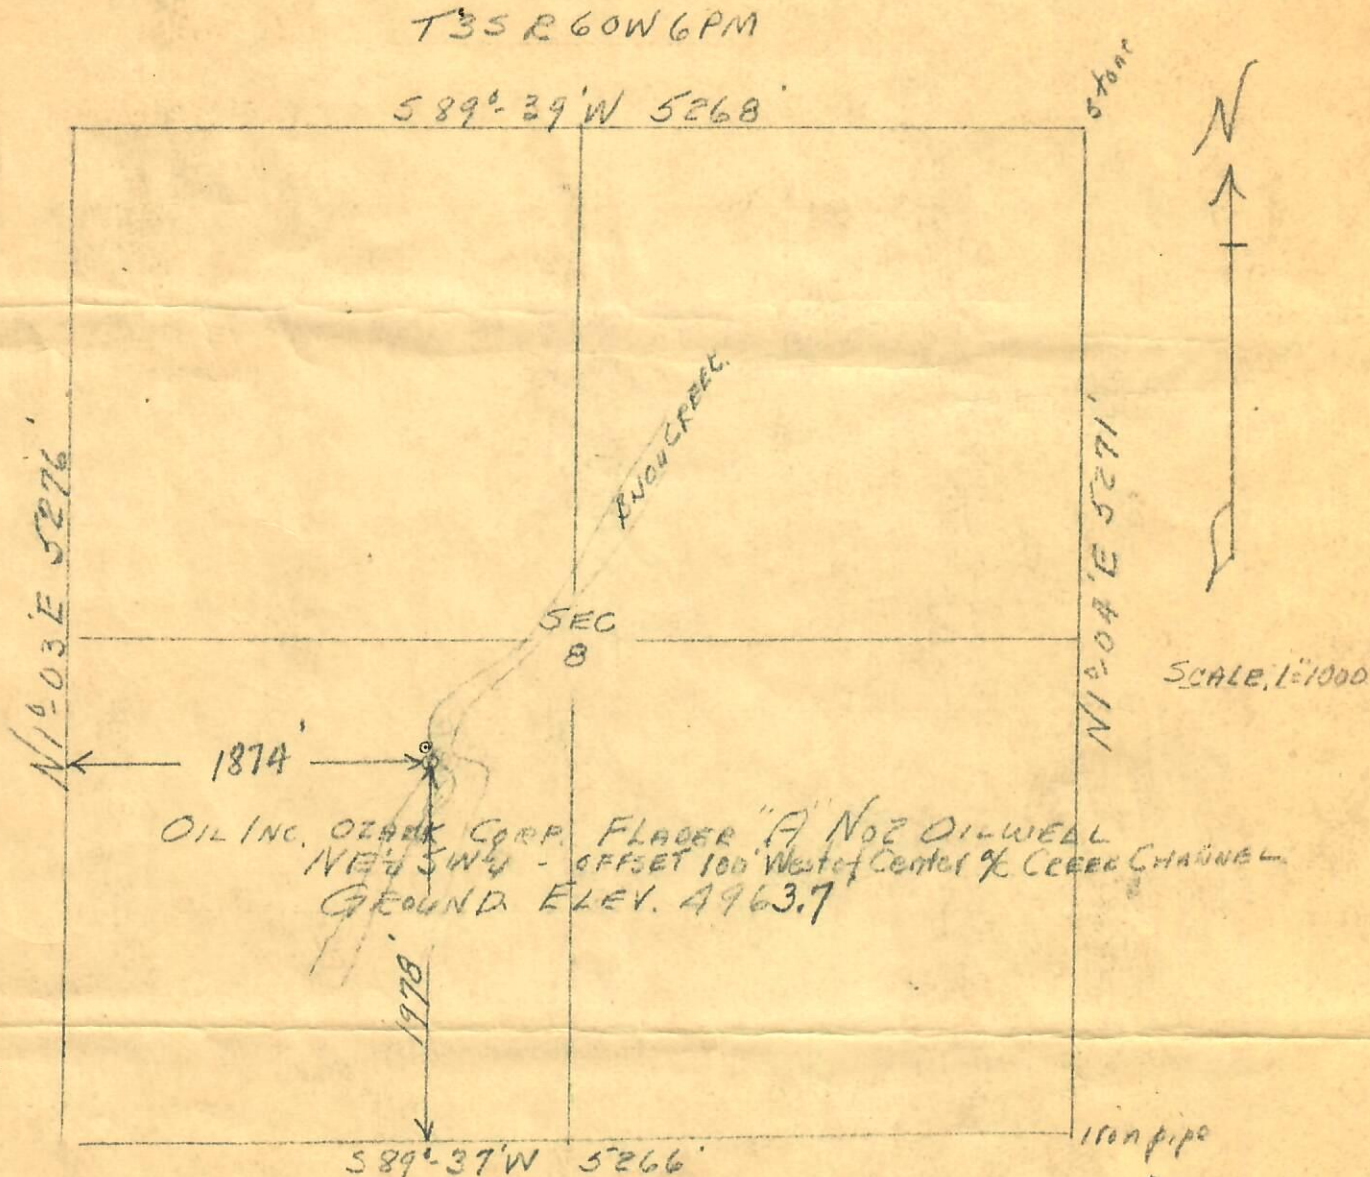 T3S R60W 6PM
S 89°-39'W 5268'
Stone
N
N1°-03'E 5276'
SNOW CREEK.
N1°-04'E 5271'
SEC
8
SCALE, 1"=1000
1874'
OIL INC, OZARK CORP. FLADER "A" No2 OILWELL
NE¼ SW¼ - OFFSET 100' West of Center of CREEK CHANNEL
GROUND ELEV. 4963.7
1978'
Iron pipe
S 89°-37'W 5266'